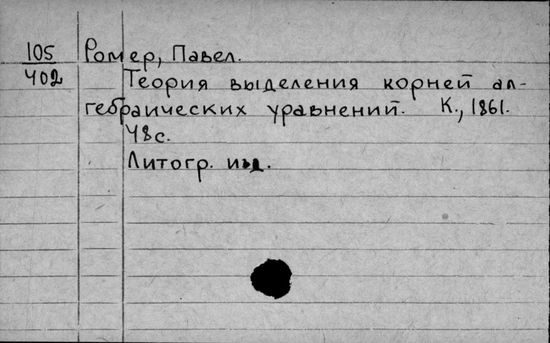 105 Ромер, Павел.
402 Теория выделения корней ал-
гебраических уравнений. К., 1861.
48 с.
Литогр. изд.